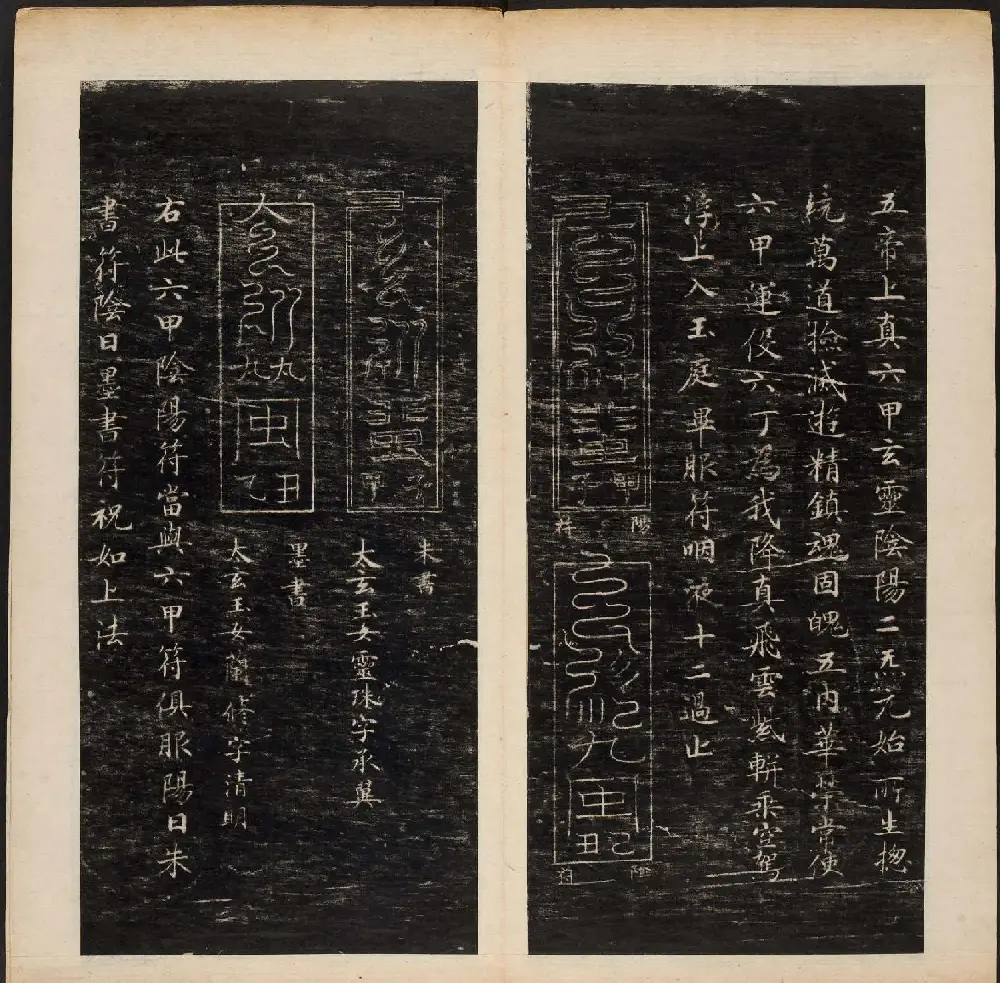 五帝上真六甲玄靈陰陽二炁元始所生揔
統萬道撿滅遊精鎮魂固魄五內華榮常使
六甲運役六丁為我降真飛雲紫軿乘空駕
浮上入玉庭畢服符咽液十二過止
陽符
陰符
朱書
太玄玉女靈珠字承翼
墨書
太玄玉女蘭修字清明
右此六甲陰陽符當與六甲符俱服陽日朱
書符陰日墨書符祝如上法